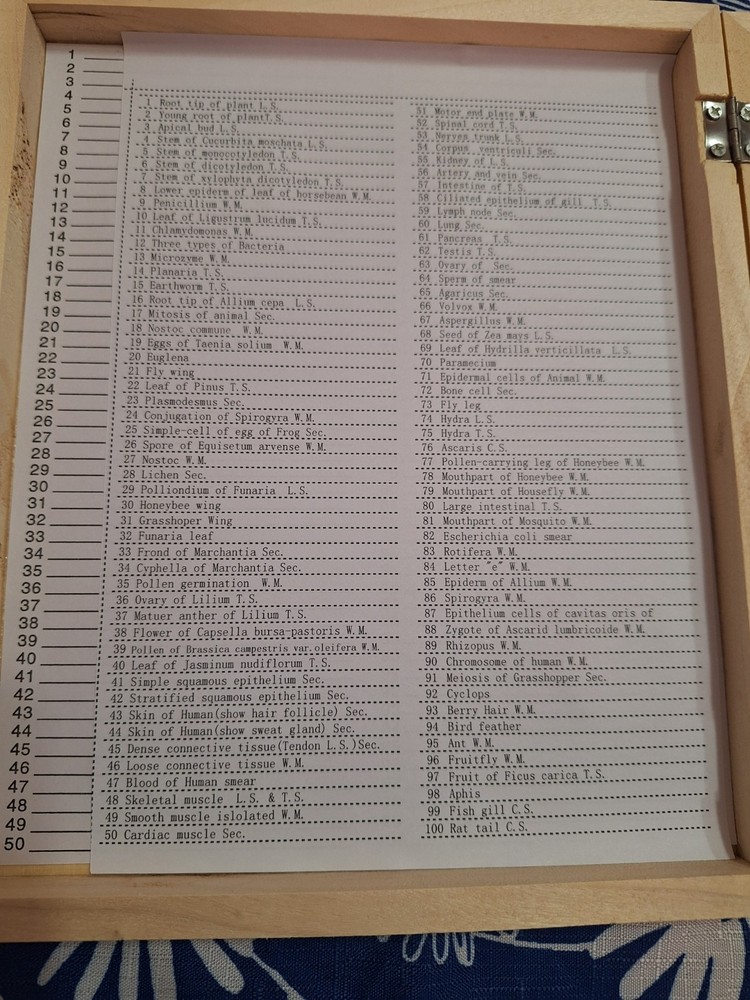 1
2
3
4
5
6
7
8
9
10
11
12
13
14
15
16
17
18
19
20
21
22
23
24
25
26
27
28
29
30
31
32
33
34
35
36
37
38
39
40
41
42
43
44
45
46
47
48
49
50
1 Root tip of plant L.S.
2 Young root of plantT.S.
3 Apical bud L.S.
4 Stem of Cucurbita moschata L.S.
5 Stem of monocotyledon T.S.
6 Stem of dicotyledon T.S.
7 Stem of xylophyta dicotyledon T.S.
8 Lower epiderm of leaf of horsebean W.M.
9 Penicillium W.M.
10 Leaf of Ligustrum lucidum T.S.
11 Chlamydomonas W.M.
12 Three types of Bacteria
13 Microzyme W.M.
14 Planaria T.S.
15 Earthworm T.S.
16 Root tip of Allium cepa L.S.
17 Mitosis of animal Sec.
18 Nostoc commune W.M.
19 Eggs of Taenia solium W.M.
20 Euglena
21 Fly wing
22 Leaf of Pinus T.S.
23 Plasmodesmus Sec.
24 Conjugation of Spirogyra W.M.
25 Simple-cell of egg of Frog Sec.
26 Spore of Equisetum arvense W.M.
27 Nostoc W.M.
28 Lichen Sec.
29 Polliondium of Funaria L.S.
30 Honeybee wing
31 Grasshoper Wing
32 Funaria leaf
33 Frond of Marchantia Sec.
34 Cyphella of Marchantia Sec.
35 Pollen germination W.M.
36 Ovary of Lilium T.S.
37 Matuer anther of Lilium T.S.
38 Flower of Capsella bursa-pastoris W.M.
39 Pollen of Brassica campestris var.oleifera W.M.
40 Leaf of Jasminum nudiflorum T.S.
41 Simple squamous epithelium Sec.
42 Stratified squamous epithelium Sec.
43 Skin of Human(show hair follicle) Sec.
44 Skin of Human(show sweat gland) Sec.
45 Dense connective tissue(Tendon L.S.)Sec.
46 Loose connective tissue W.M.
47 Blood of Human smear
48 Skeletal muscle L.S. & T.S.
49 Smooth muscle islolated W.M.
50 Cardiac muscle Sec.
51 Motor end plate W.M.
52 Spinal cord T.S.
53 Nerves trunk L.S.
54 Corpus ventriculi Sec.
55 Kidney of L.S.
56 Artery and vein Sec.
57 Intestine of T.S.
58 Ciliated epithelium of gill T.S.
59 Lymph node Sec.
60 Lung Sec.
61 Pancreas T.S.
62 Testis T.S.
63 Ovary of Sec.
64 Sperm of smear
65 Agaricus Sec.
66 Volvox W.M.
67 Aspergillus W.M.
68 Seed of Zea mays L.S.
69 Leaf of Hydrilla verticillata L.S.
70 Paramecium
71 Epidermal cells of Animal W.M.
72 Bone cell Sec.
73 Fly leg
74 Hydra L.S.
75 Hydra T.S.
76 Ascaris C.S.
77 Pollen-carrying leg of Honeybee W.M.
78 Mouthpart of Honeybee W.M.
79 Mouthpart of Housefly W.M.
80 Large intestinal T.S.
81 Mouthpart of Mosquito W.M.
82 Escherichia coli smear
83 Rotifera W.M.
84 Letter "e" W.M.
85 Epiderm of Allium W.M.
86 Spirogyra W.M.
87 Epithelium cells of cavitas oris of
88 Zygote of Ascarid lumbricoide W.M.
89 Rhizopus W.M.
90 Chromosome of human W.M.
91 Meiosis of Grasshopper Sec.
92 Cyclops
93 Berry Hair W.M.
94 Bird feather
95 Ant W.M.
96 Fruitfly W.M.
97 Fruit of Ficus carica T.S.
98 Aphis
99 Fish gill C.S.
100 Rat tail C.S.